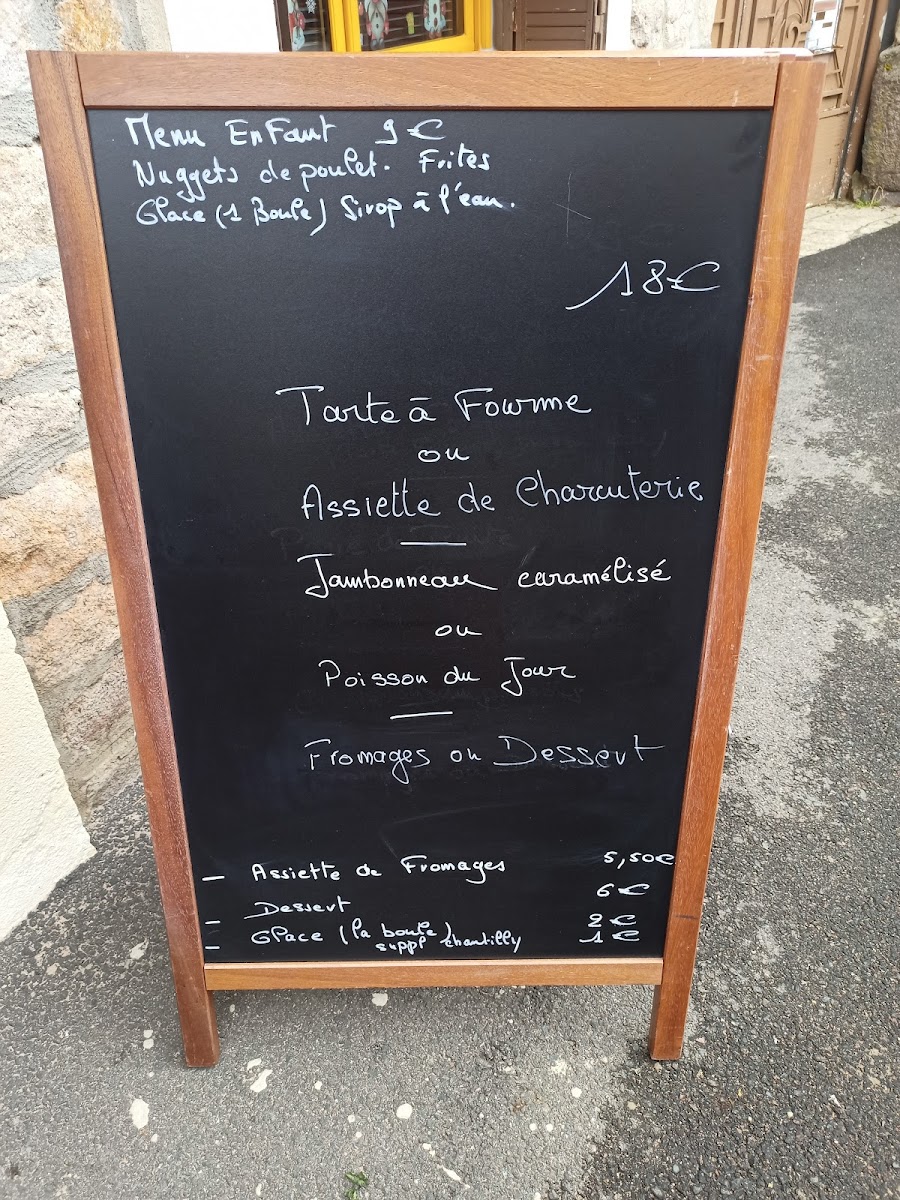 Menu EnFant 9 €
Nuggets de poulet. Frites
Glace (1 Boule) Sirop à l'eau.
18€
Tarte à Fourme
ou
Assiette de Charcuterie
Jambonneau caramélisé
ou
Poisson du Jour
Fromages ou Dessert
- Assiette de Fromages 5,50€
- Dessert 6€
- Glace (la boule) 2€
suppl chantilly 1€